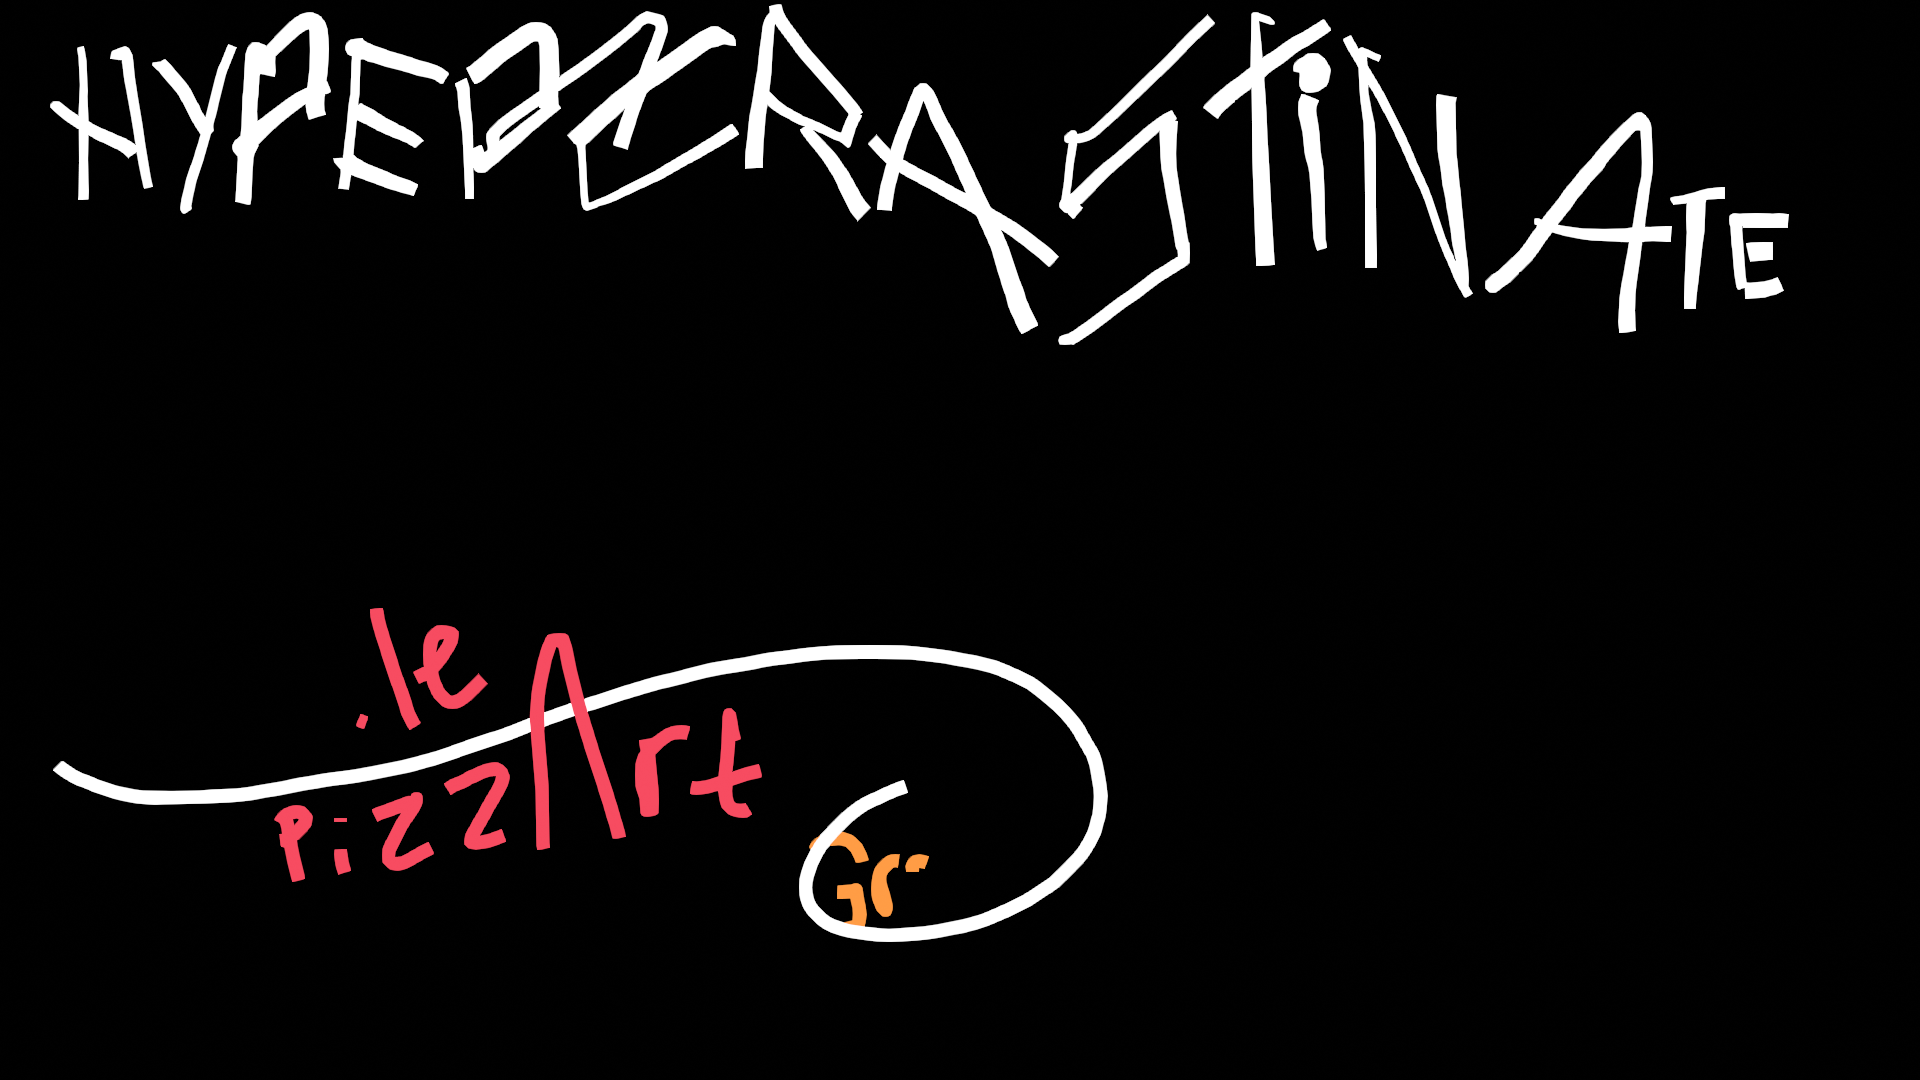 HYPEPZRASTiNATE
.le
PizzArt
Gr